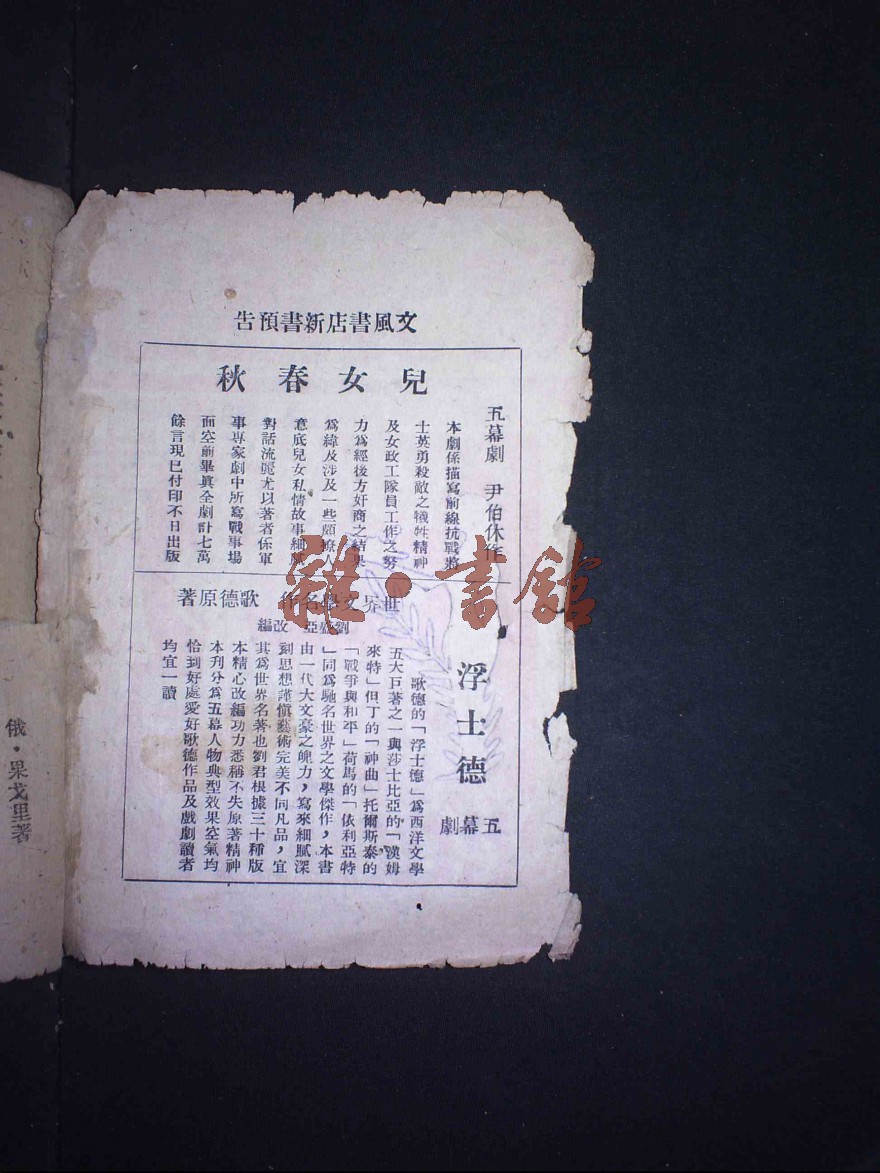 文風書店新書預告
兒女春秋
五幕劇 尹伯休作
本劇係描寫前線抗戰將
士英勇殺敵之犧牲精神
及女政工隊員工作之努
力爲經後方奸商之結果
爲緯及涉及一些頗撩人
意底兒女私情故事細膩
對話流麗尤以著者係軍
事專家劇中所寫戰事場
面空前畢眞全劇計七萬
餘言現已付印不日出版
世界文學名作 歌德原著
劉盛亞 改編
浮士德
五幕劇
歌德的「浮士德」爲西洋文學
五大巨著之一與莎士比亞的「漢姆
來特」但丁的「神曲」托爾斯泰的
「戰爭與和平」荷馬的「依利亞特
」同爲馳名世界之文學傑作，本書
由一代大文豪之魄力，寫來細膩深
刻思想謹慎藝術完美不同凡品，宜
其爲世界名著也劉君根據三十種版
本精心改編功力悉稱不失原著精神
本刊分爲五幕人物典型效果空氣均
恰到好處愛好歌德作品及戲劇讀者
均宜一讀
俄·果戈里著
雜·書館